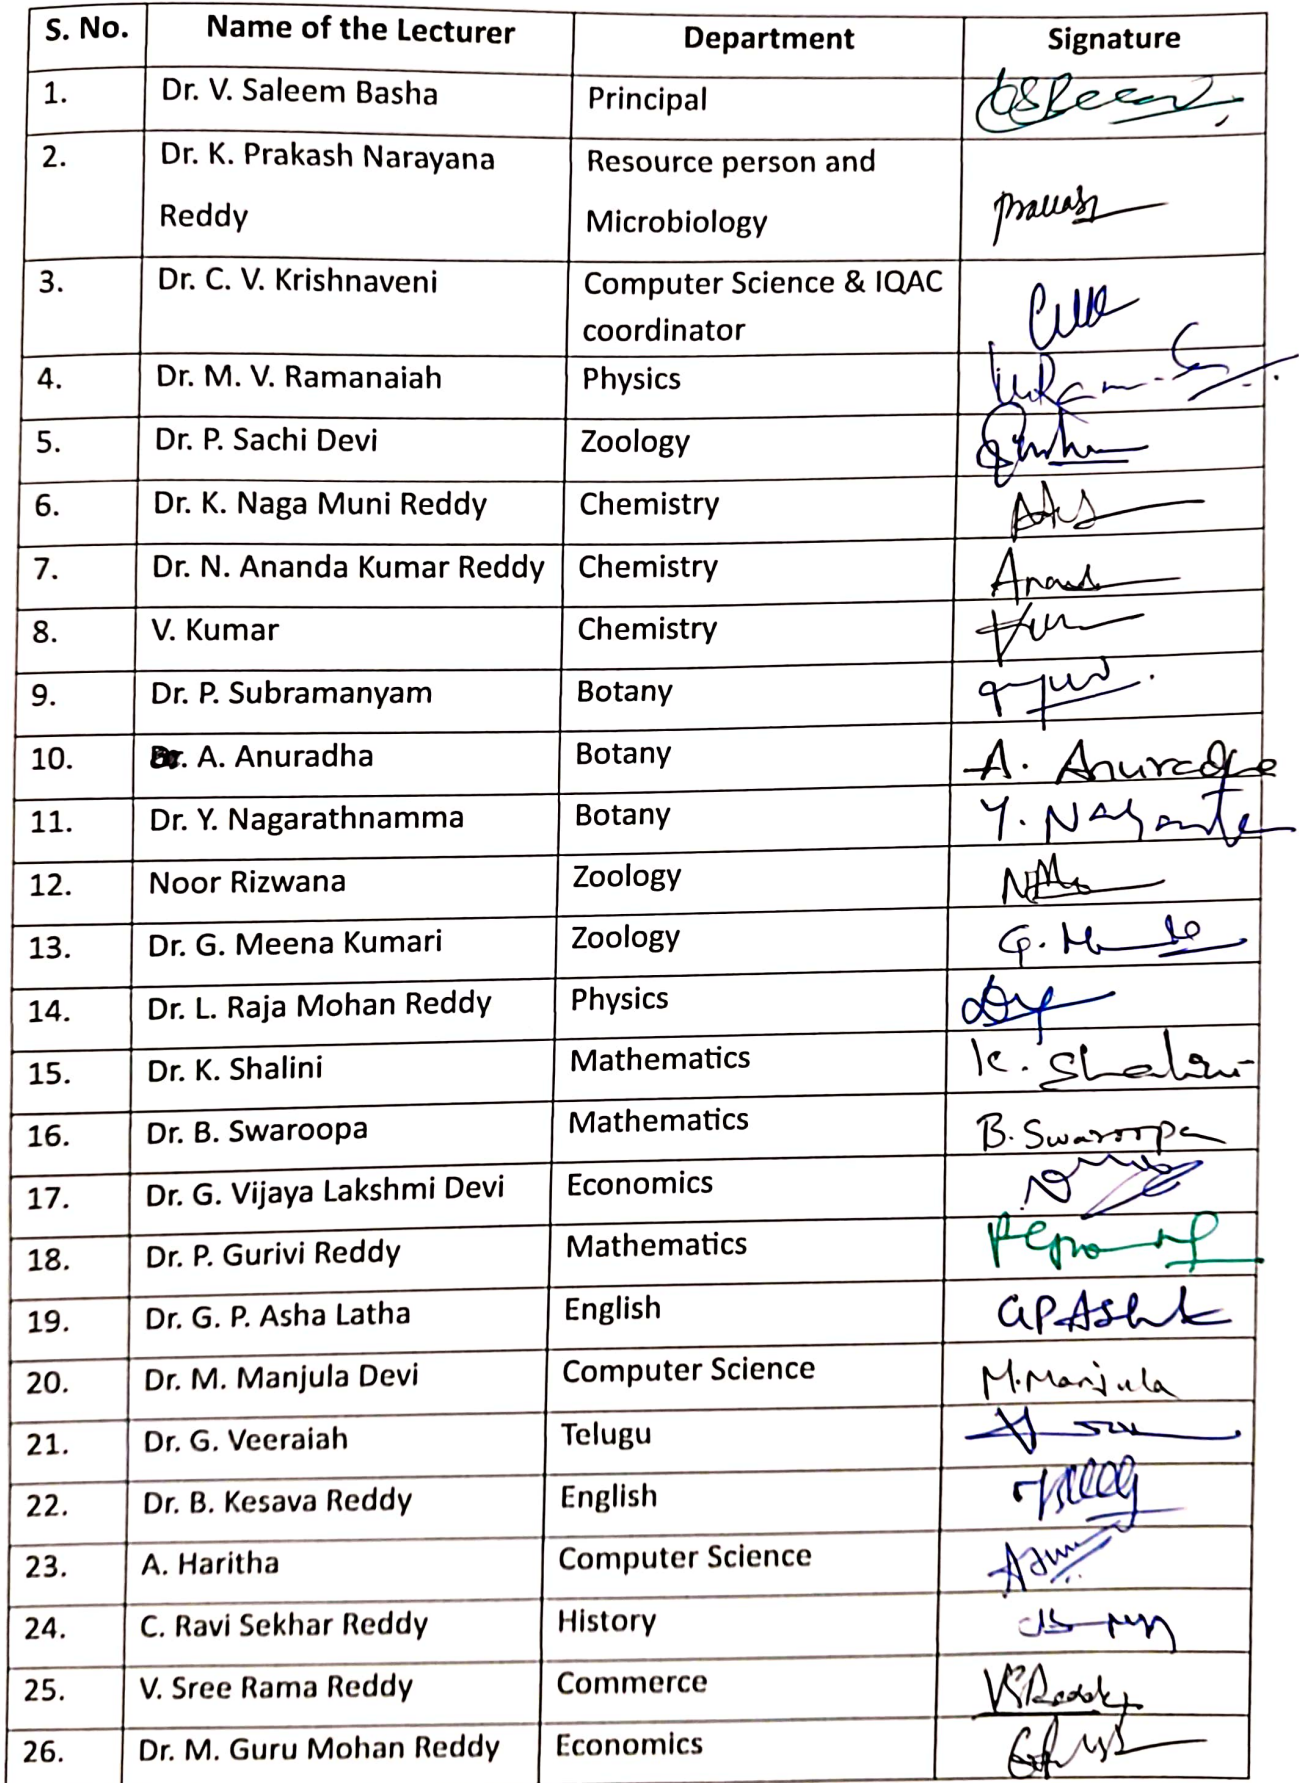 S. No. Name of the Lecturer Department Signature
1. Dr. V. Saleem Basha Principal
2. Dr. K. Prakash Narayana Resource person and
Reddy Microbiology
3. Dr. C. V. Krishnaveni Computer Science & IQAC
coordinator
4. Dr. M. V. Ramanaiah Physics
5. Dr. P. Sachi Devi Zoology
6. Dr. K. Naga Muni Reddy Chemistry
7. Dr. N. Ananda Kumar Reddy Chemistry
8. V. Kumar Chemistry
9. Dr. P. Subramanyam Botany
10. A. Anuradha Botany A. Anuradha
11. Dr. Y. Nagarathnamma Botany
12. Noor Rizwana Zoology
13. Dr. G. Meena Kumari Zoology
14. Dr. L. Raja Mohan Reddy Physics
15. Dr. K. Shalini Mathematics K. Shalini
16. Dr. B. Swaroopa Mathematics B. Swaroopa
17. Dr. G. Vijaya Lakshmi Devi Economics
18. Dr. P. Gurivi Reddy Mathematics
19. Dr. G. P. Asha Latha English
20. Dr. M. Manjula Devi Computer Science M. Manjula
21. Dr. G. Veeraiah Telugu
22. Dr. B. Kesava Reddy English
23. A. Haritha Computer Science
24. C. Ravi Sekhar Reddy History
25. V. Sree Rama Reddy Commerce
26. Dr. M. Guru Mohan Reddy Economics